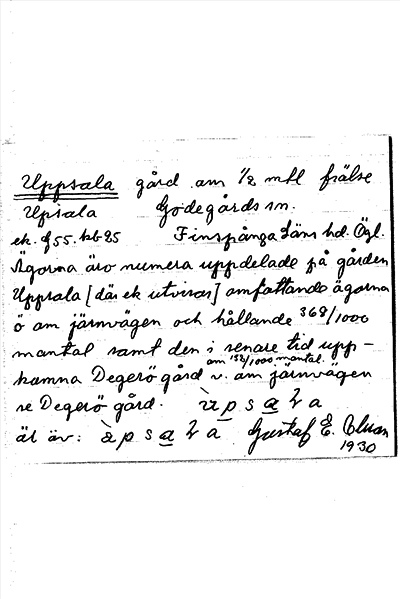 Uppsala gård om 1/2 mtl frälse
Upsala Godegårds sn.
ek. f 55. kb 85 Finspånga Läns hd. Ögl.
Ägorna äro numera uppdelade på gården
Uppsala [där ek utvisas] omfattande ägorna
ö om järnvägen och hållande 368/1000
mantal samt den i senare tid upp-
om 132/1000 mantal.
komna Degerö gård v. om järnvägen
se Degerö gård.
äl äv:
Gustaf E.
1930